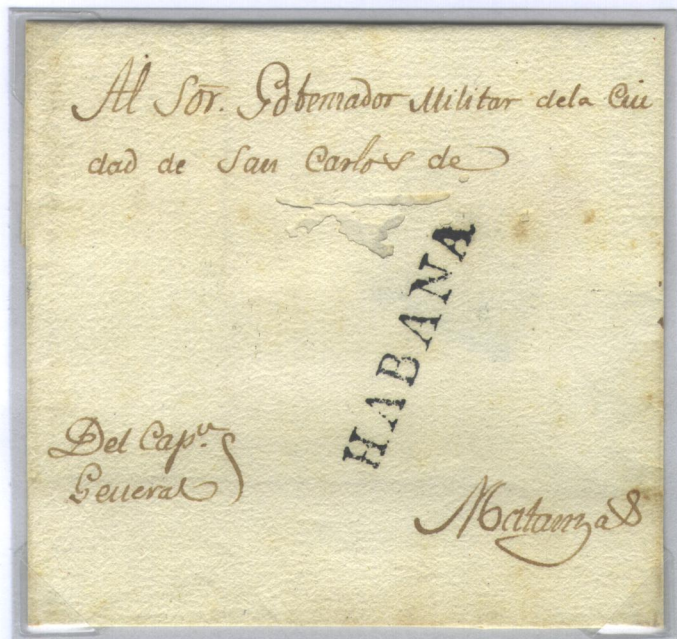 Al Sor. Gobernador Militar dela Ciu
dad de San Carlos de
HABANA
Del Capn.
General
Matanzas